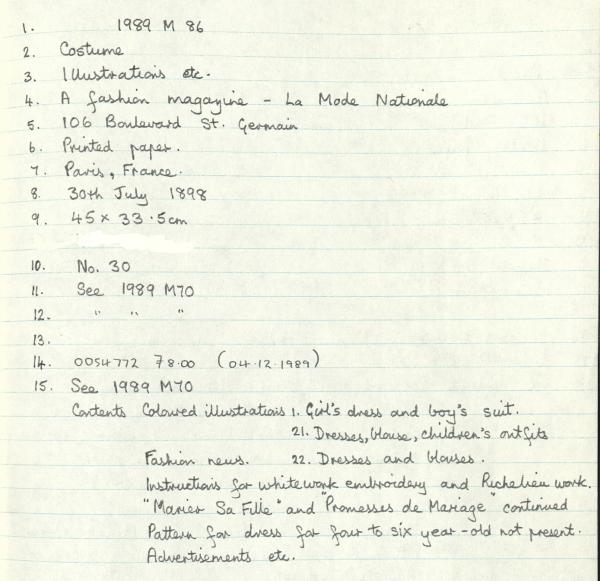 1. 1989 M 86
2. Costume
3. Illustrations etc.
4. A fashion magazine - La Mode Nationale
5. 106 Boulevard St. Germain
6. Printed paper.
7. Paris, France.
8. 30th July 1898
9. 45 x 33.5cm
10. No. 30
11. See 1989 M70
12. " " "
13.
14. 0054772 78.00 (04.12.1989)
15. See 1989 M70
Contents Coloured illustrations 1. Girl's dress and boy's suit.
21. Dresses, blouse, children's outfits
Fashion news. 22. Dresses and blouses.
Instructions for whitework embroidery and Richelieu work.
"Marier Sa Fille" and "Promesses de Mariage" continued
Pattern for dress for four to six year-old not present.
Advertisements etc.